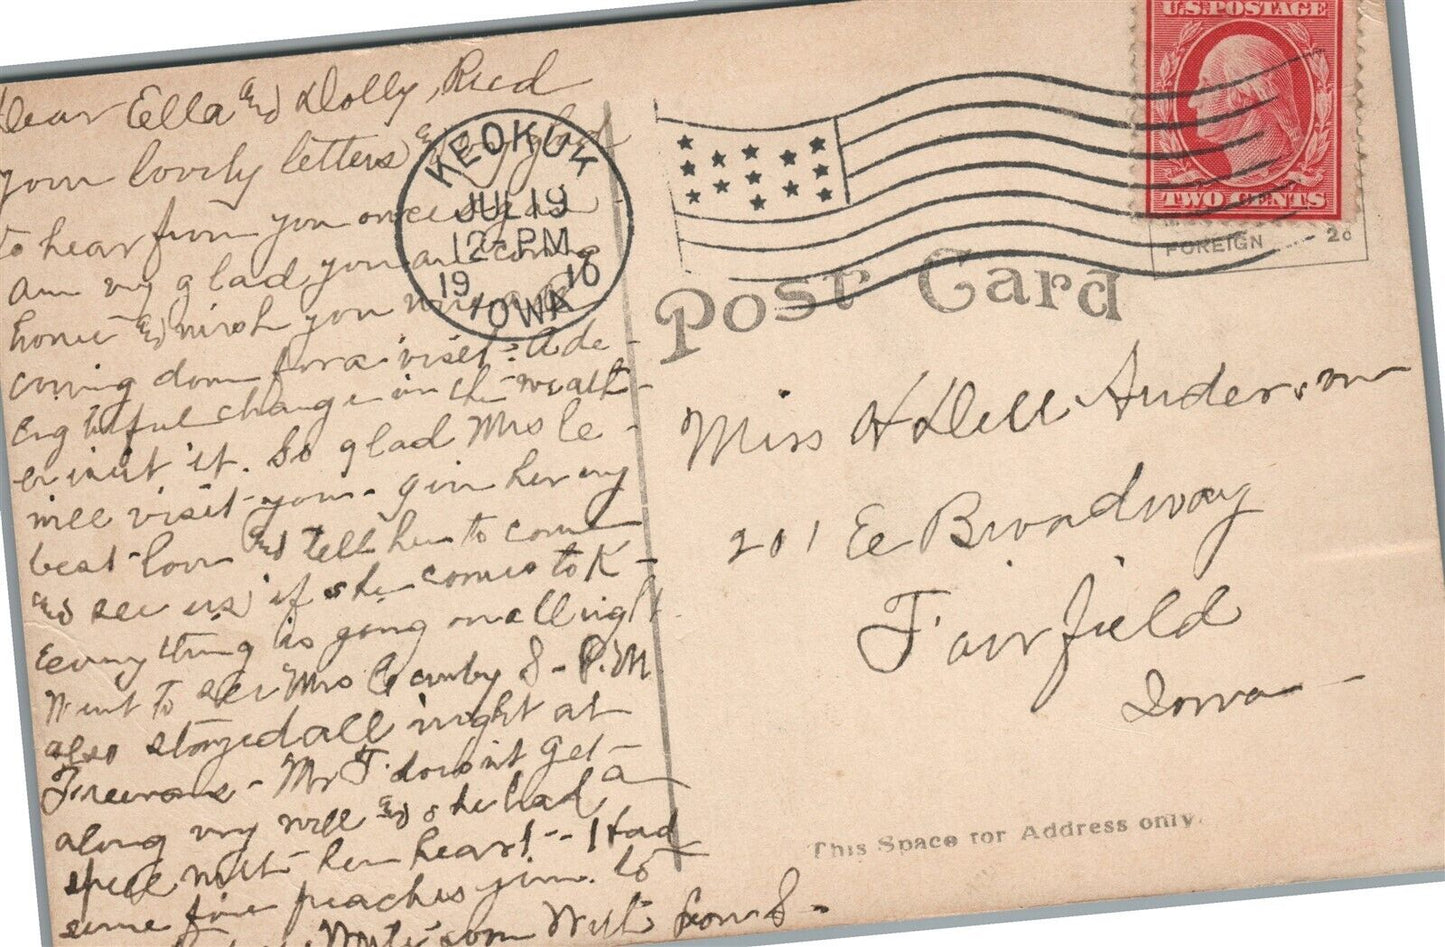 Dear Ella and Dolly, Recd
your lovely letters & very glad
to hear from you once again
am very glad you are coming
home and wish you were
coming down for a visit. A de-
lightful change in the weath-
er isn't it. So glad Mrs Le-
will visit you. give her my
best love and tell her to come
and see us if she comes to K-
Everything is going on all right
Went to see Mrs S- P.M
also stayed all night at
Freemans - Mr F. doesn't get
along very well and she had a
spell with her heart -- I had
some fine peaches
Write soon With Love S-
KEOKUK
JUL 19
12-PM
1910
IOWA
U.S. POSTAGE
TWO CENTS
FOREIGN 2c
Post Card
Miss H Dell Anderson
201 E Broadway
Fairfield
Iowa
This Space for Address only.